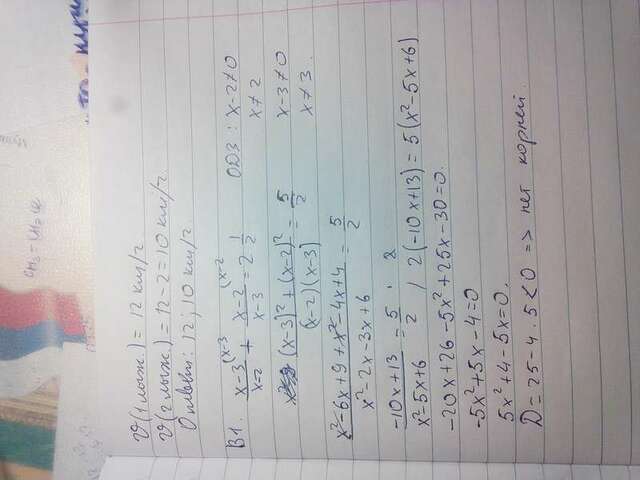 CH₃-CH₂-Cl
υ(1лыж.) = 12 км/ч.
υ(2лыж.) = 12-2=10 км/ч.
Ответ: 12; 10 км/ч.
B1. (x-3)/(x-2) (x-3 + (x-2)/(x-3) (x-2 = 2 1/2 ОДЗ: x-2≠0
x≠2
((x-3)²+(x-2)²)/((x-2)(x-3)) = 5/2 x-3≠0
x≠3.
(x²-6x+9+x²-4x+4)/(x²-2x-3x+6) = 5/2
(-10x+13)/(x²-5x+6) = 5/2 / 2(-10x+13)=5(x²-5x+6)
-20x+26-5x²+25x-30=0.
-5x²+5x-4=0
5x²+4-5x=0.
D=25-4·5<0 => нет корней.